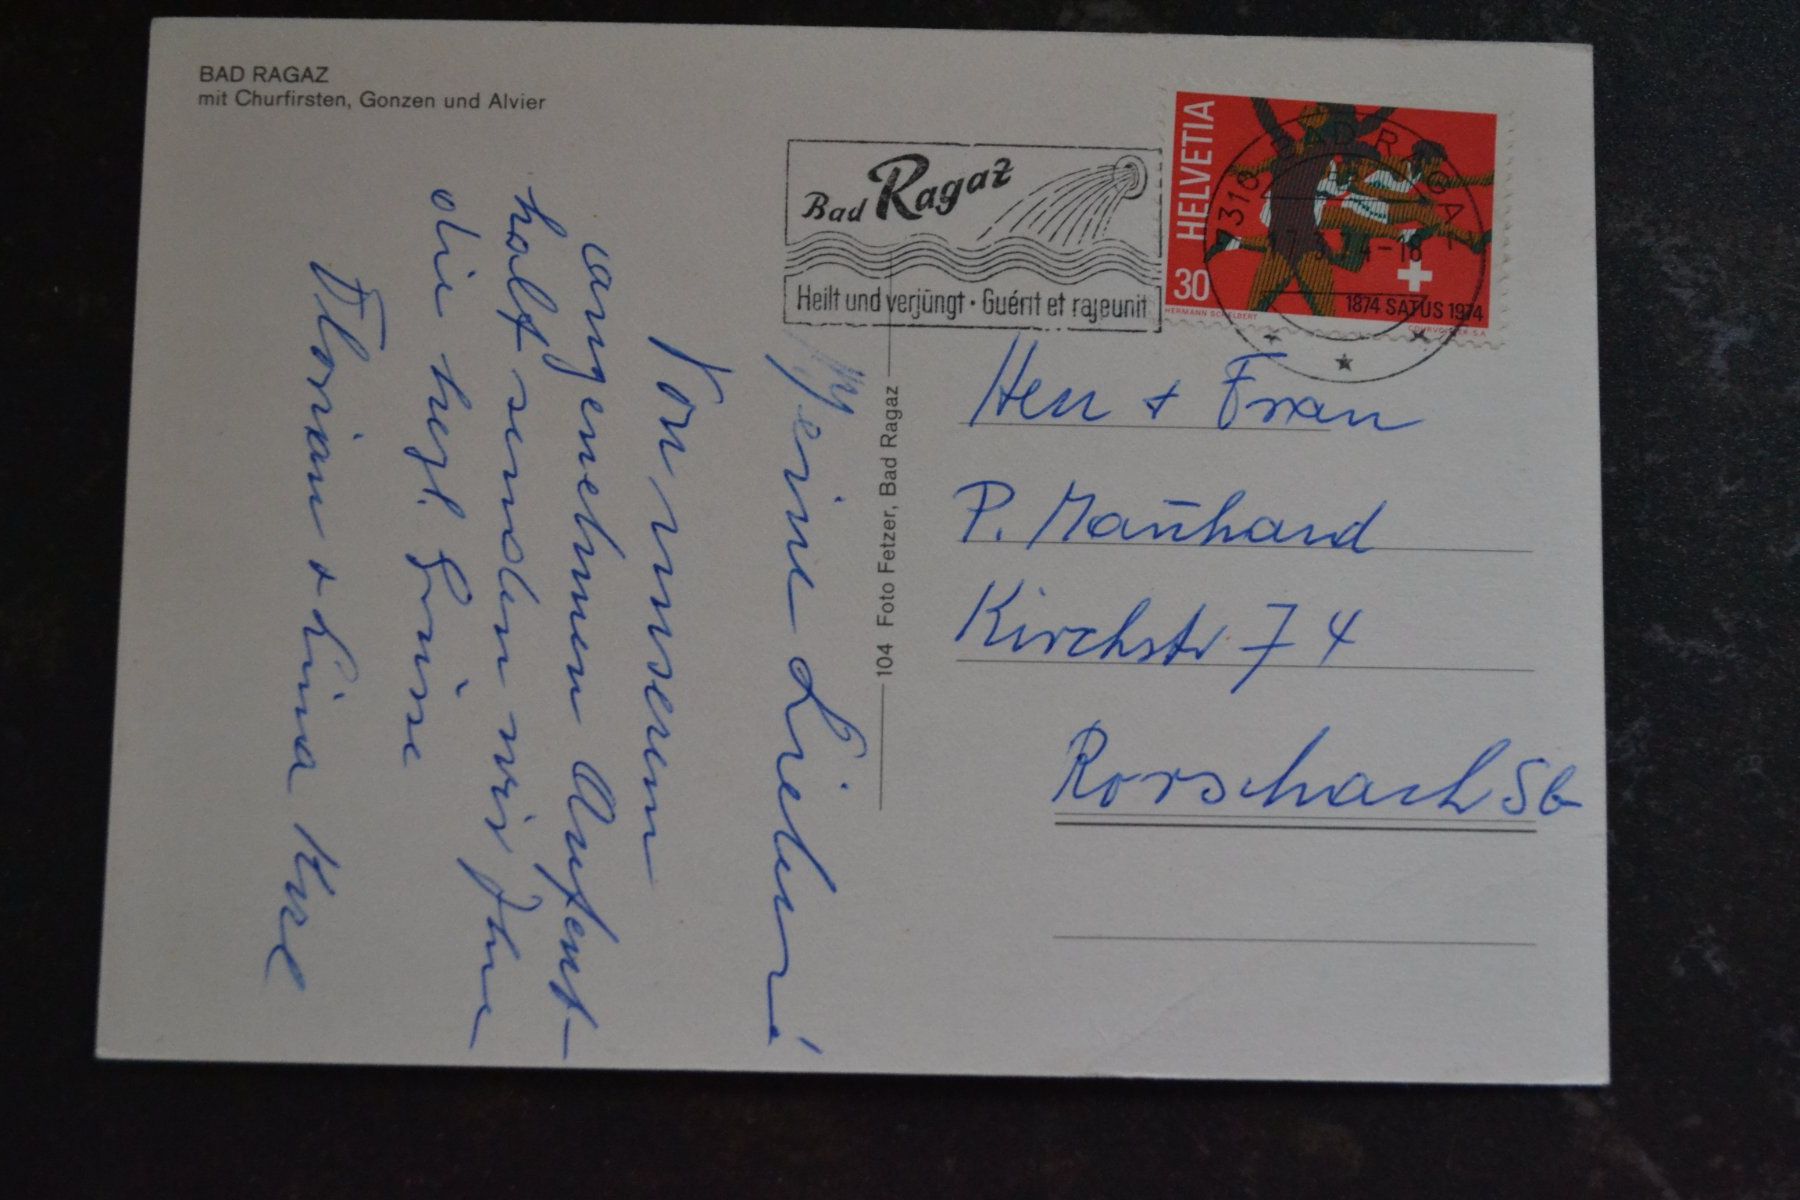 BAD RAGAZ
mit Churfirsten, Gonzen und Alvier
Meine Lieben!
Von unserem
angenehmen Aufent-
halt senden wir Ihnen
die herzl. Grüsse
Florian + Lina
104 Foto Fetzer, Bad Ragaz
Bad Ragaz
Heilt und verjüngt · Guérit et rajeunit
HELVETIA
30
1874 SATUS 1974
HERMANN SCHELBERT
COURVOISIER S.A.
7310 BAD RAGAZ
Herr + Frau
P. Maūhard
Kirchstr 74
Rorschach SG